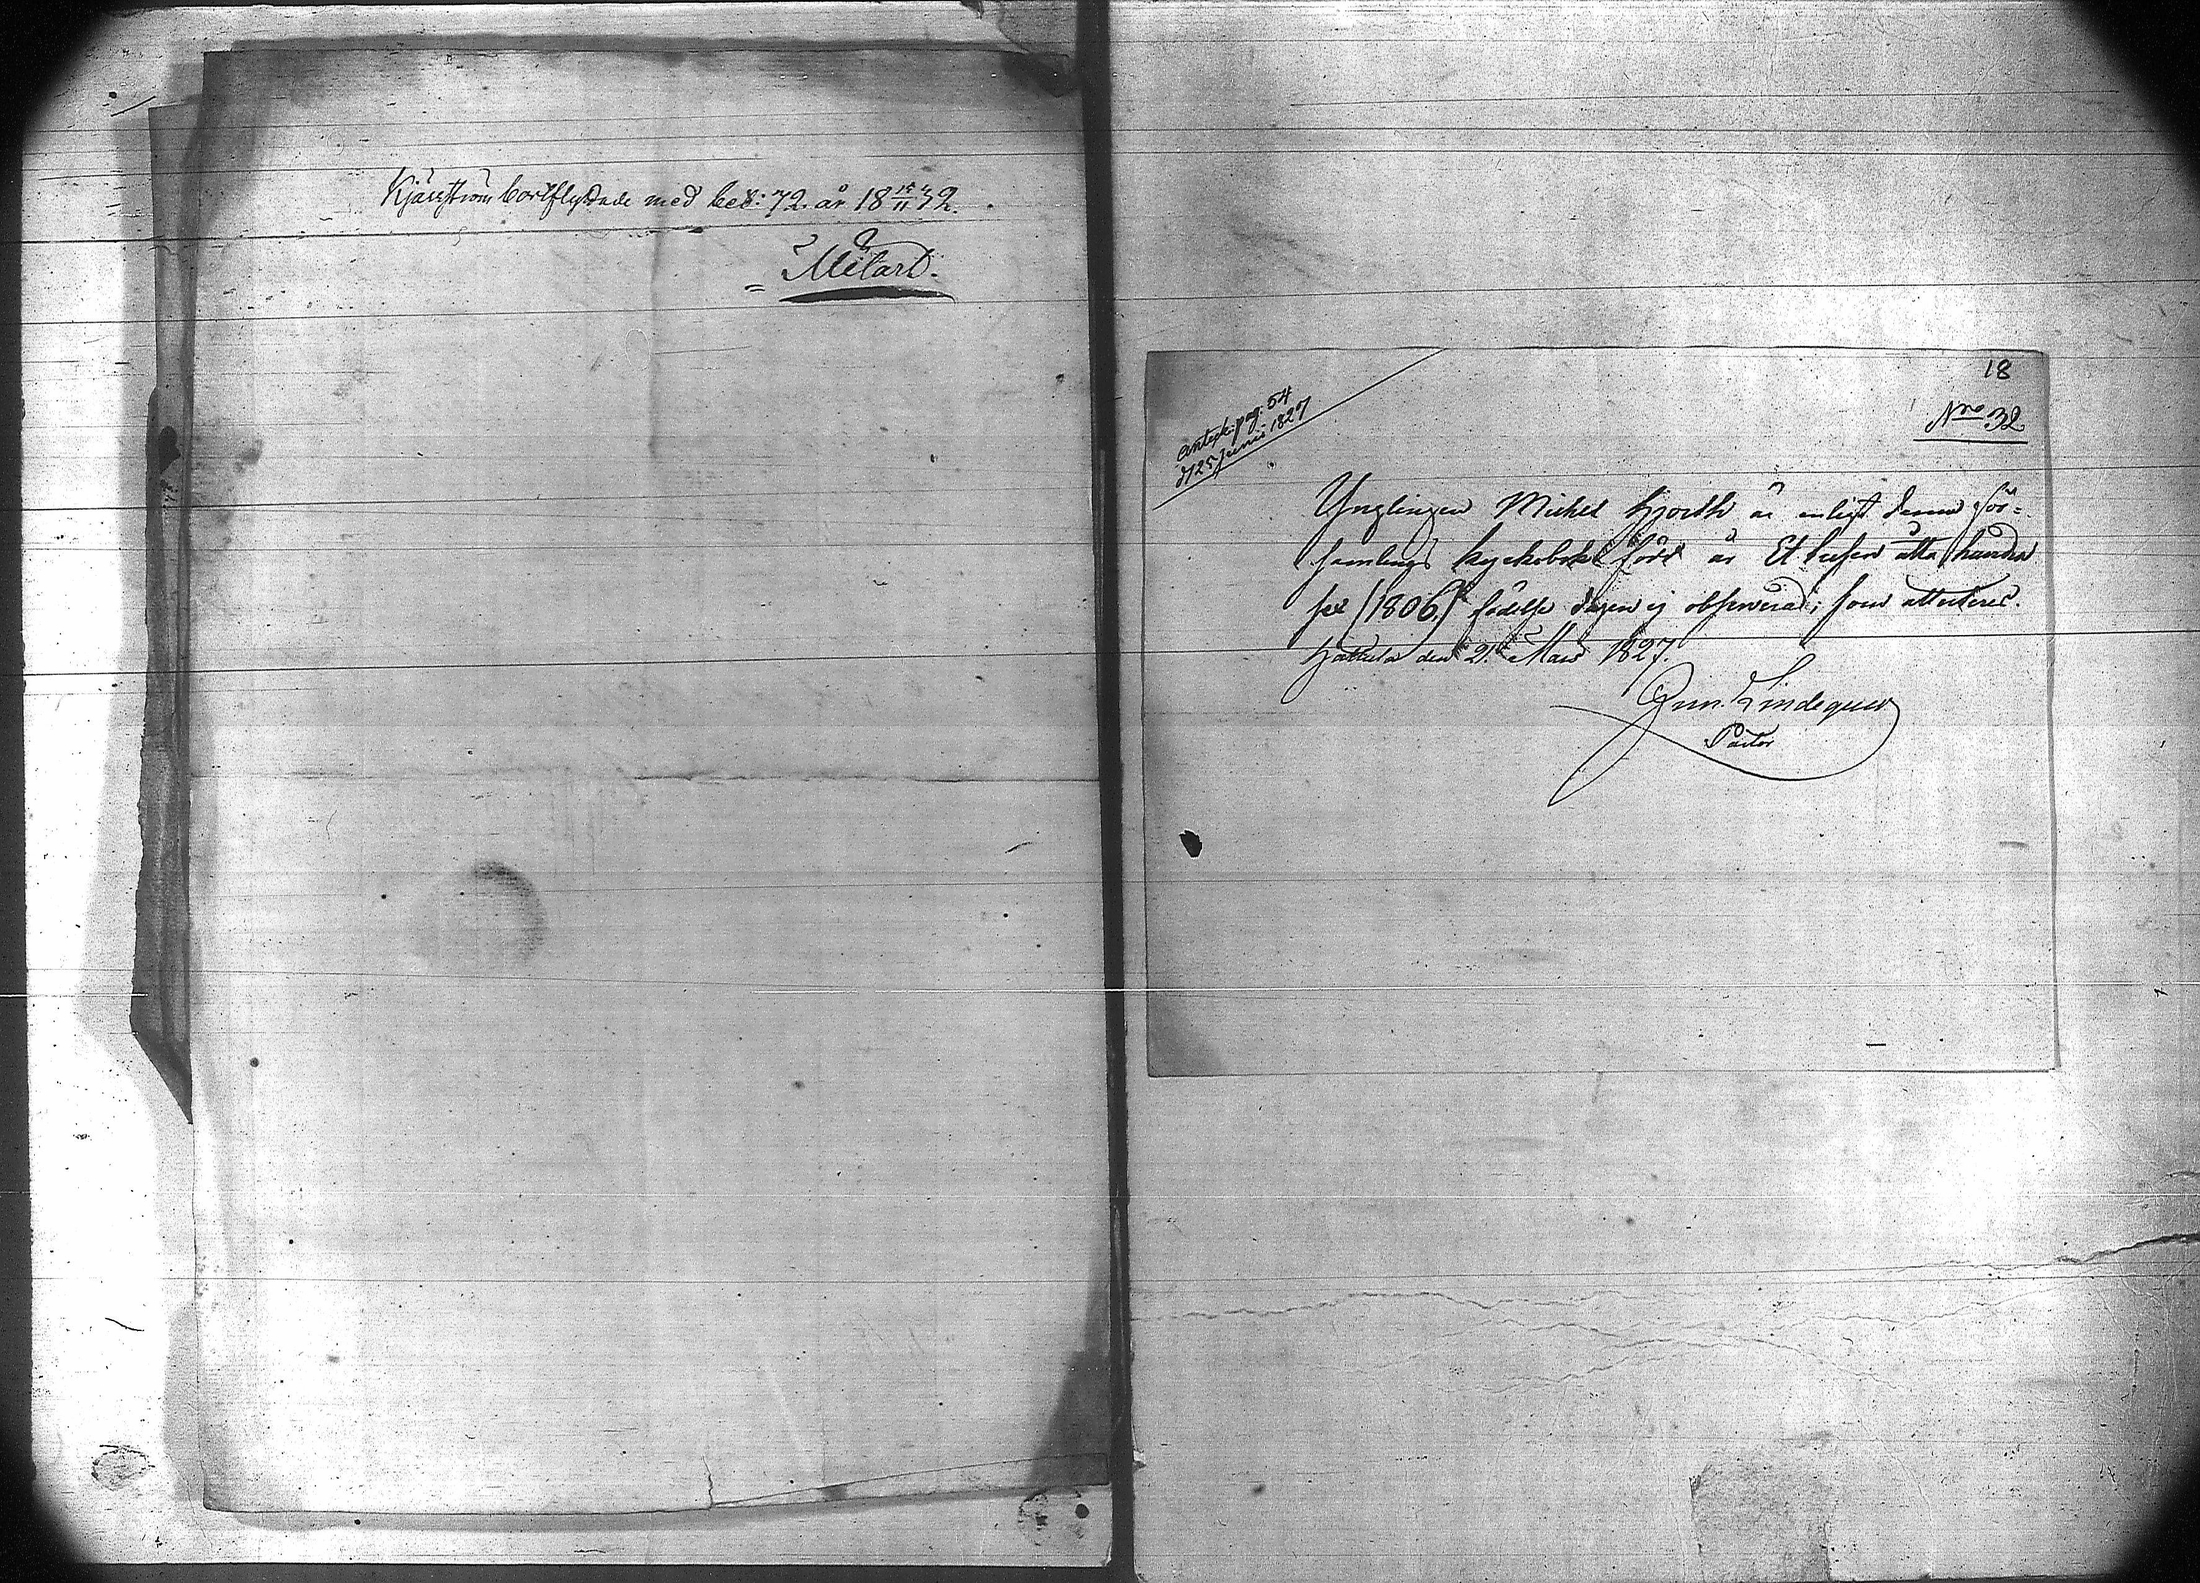 Kjällström bortflyttade med bet: 72. år 18 15/11 32.
Melart.
18
Nro 32
anteckn. pag. 54
d 25 Junii 1827
Ynglingen Michel Hjorth är enligt denna för=
samlings kyrkobok född år Ett tusen åtta hundra
sex (1806.) födelse dagen ej observerad; som attesteras.
Hattula den 21 Maii 1827.
Lindequist
Pastor